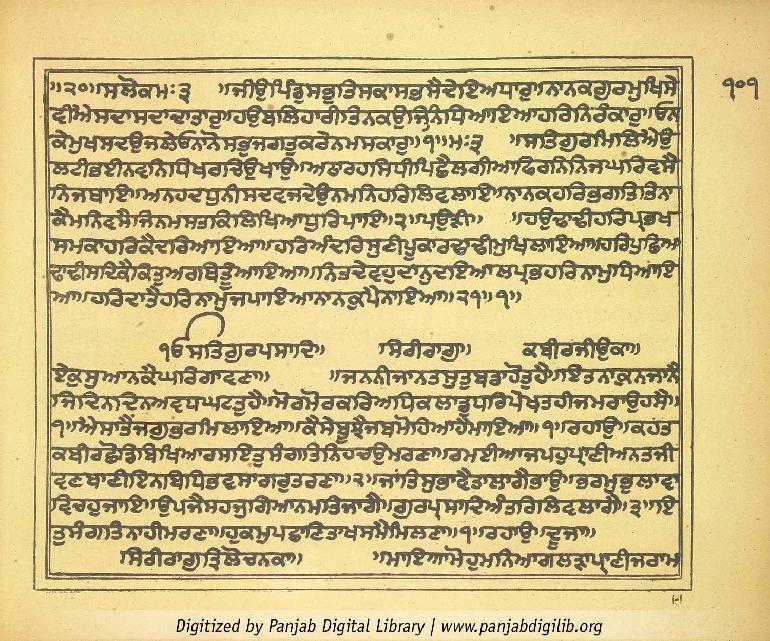 ॥੨੦॥ਸਲੋਕਮਃ੩ ॥ਜੀਉਪਿੰਡੁਸਭੁਤਿਸਕਾਸਭਸੈਦੇਇਅਧਾਰੁ॥ਨਾਨਕਗੁਰਮੁਖਿਸੇ
ਵੀਐਸਦਾਸਦਾਦਾਤਾਰੁ॥ਹਉਬਲਿਹਾਰੀਤਿਨਕਉਜਿਨਿਧਿਆਇਆਹਰਿਨਿਰੰਕਾਰੁ॥ਓਨਾ
ਕੇਮੁਖਸਦਉਜਲੇਓਨਾਨੋਸਭੁਜਗਤੁਕਰੇਨਮਸਕਾਰੁ॥੧॥ਮਃ੩ ॥ਸਤਿਗੁਰਮਿਲਿਐਉ
ਲਟੀਭਈਨਵਨਿਧਿਖਰਚਿਉਖਾਉ॥ਅਠਾਰਹਸਿਧੀਪਿਛੈਲਗੀਆਫਿਰਨਿਨਿਜਘਰਿਵਸੈ
ਨਿਜਥਾਇ॥ਅਨਹਦਧੁਨੀਸਦਵਜਦੇਉਨਮਨਿਹਰਿਲਿਵਲਾਇ॥ਨਾਨਕਹਰਿਭਗਤਿਤਿਨਾ
ਕੈਮਨਿਵਸੈਜਿਨਮਸਤਕਿਲਿਖਿਆਧੁਰਿਪਾਇ॥੨॥ਪਉੜੀ॥ ॥ਹਉਢਾਢੀਹਰਿਪ੍ਰਭਖ
ਸਮਕਾਹਰਿਕੈਦਰਿਆਇਆ॥ਹਰਿਅੰਦਰਿਸੁਣੀਪੂਕਾਰਢਾਢੀਮੁਖਿਲਾਇਆ॥ਹਰਿਪੁਛਿਆ
ਢਾਢੀਸਦਿਕੈਕਿਤੁਅਰਥਿਤੂੰਆਇਆ॥ਨਿਤਦੇਵਹੁਦਾਨੁਦਇਆਲਪ੍ਰਭਹਰਿਨਾਮੁਧਿਆਇ
ਆ॥ਹਰਿਦਾਤੈਹਰਿਨਾਮੁਜਪਾਇਆਨਾਨਕੁਪੈਨਾਇਆ॥੨੧॥੧॥
੧ਓੁਸਤਿਗੁਰਪ੍ਰਸਾਦਿ॥ ਸਿਰੀਰਾਗੁ॥ ਕਬੀਰਜੀਉਕਾ॥
ਏਕੁਸੁਆਨਕੈਘਰਿਗਾਵਣਾ॥ ॥ਜਨਨੀਜਾਨਤਸੁਤੁਬਡਾਹੋਤੁਹੈ॥ਇਤਨਾਕੁਨਜਾਨੈ
ਜਿਦਿਨਦਿਨਅਵਧਘਟਤੁਹੈ॥ਮੋਰਮੋਰਕਰਿਅਧਿਕਲਾਡੁਧਰਿਪੇਖਤਹੀਜਮਰਾਉਹਸੈ॥
੧॥ਐਸਾਤੈਂਜਗੁਭਰਮਿਲਾਇਆ॥ਕੈਸੇਬੂਝੈਜਬਮੋਹਿਆਹੈਮਾਇਆ॥੧॥ਰਹਾਉ॥ਕਹਤ
ਕਬੀਰਛੋਡਿਬਿਖਿਆਰਸਇਤੁਸੰਗਤਿਨਿਹਚਉਮਰਣਾ॥ਰਮਈਆਜਪਹੁਪ੍ਰਾਣੀਅਨਤਜੀ
ਵਣਬਾਣੀਇਨਬਿਧਿਭਵਸਾਗਰੁਤਰਣਾ॥੨॥ਜਾਂਤਿਸੁਭਾਵੈਤਾਲਾਗੈਭਾਉ॥ਭਰਮੁਭੁਲਾਵਾ
ਵਿਚਹੁਜਾਇ॥ਉਪਜੈਸਹਜੁਗਿਆਨਮਤਿਜਾਗੈ॥ਗੁਰਪ੍ਰਸਾਦਿਅੰਤਰਿਲਿਵਲਾਗੈ॥੩॥ਇ
ਤੁਸੰਗਤਿਨਾਹੀਮਰਣਾ॥ਹੁਕਮੁਪਛਾਣਿਤਾਖਸਮੈਮਿਲਣਾ॥੧॥ਰਹਾਉਦੂਜਾ॥
ਸਿਰੀਰਾਗੁਤ੍ਰਿਲੋਚਨਕਾ॥ ॥ਮਾਇਆਮੋਹੁਮਨਿਆਗਲੜਾਪ੍ਰਾਣੀਜਰਾਮ
੧੦੧
Digitized by Panjab Digital Library | www.panjabdigilib.org